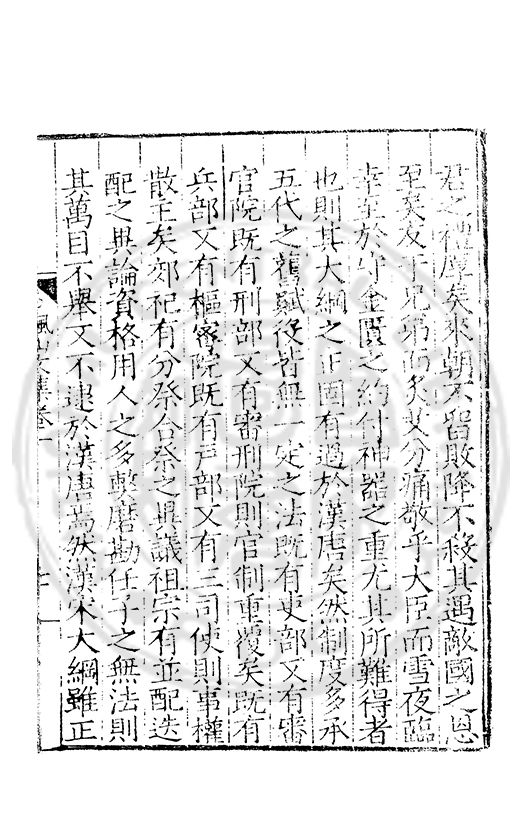 君之禮厚矣來朝不留敗降不殺其遇敵國之恩
至矣友于兄弟而炙艾分痛敬乎大臣而雪夜臨
幸至於守金匱之約付神器之重尤其所難得者
也則其大綱之正固有過於漢唐矣然制度多承
五代之舊賦役皆無一定之法既有吏部又有審
官院既有刑部又有審刑院則官制重覆矣既有
兵部又有樞密院既有戸部又有三司使則事權
散主矣郊祀有分祭合祭之異議祖宗有並配迭
配之異論資格用人之多弊磨勘任子之無法則
其萬目不舉又不逮於漢唐焉然漢宋大綱雖正
楓山文集卷一